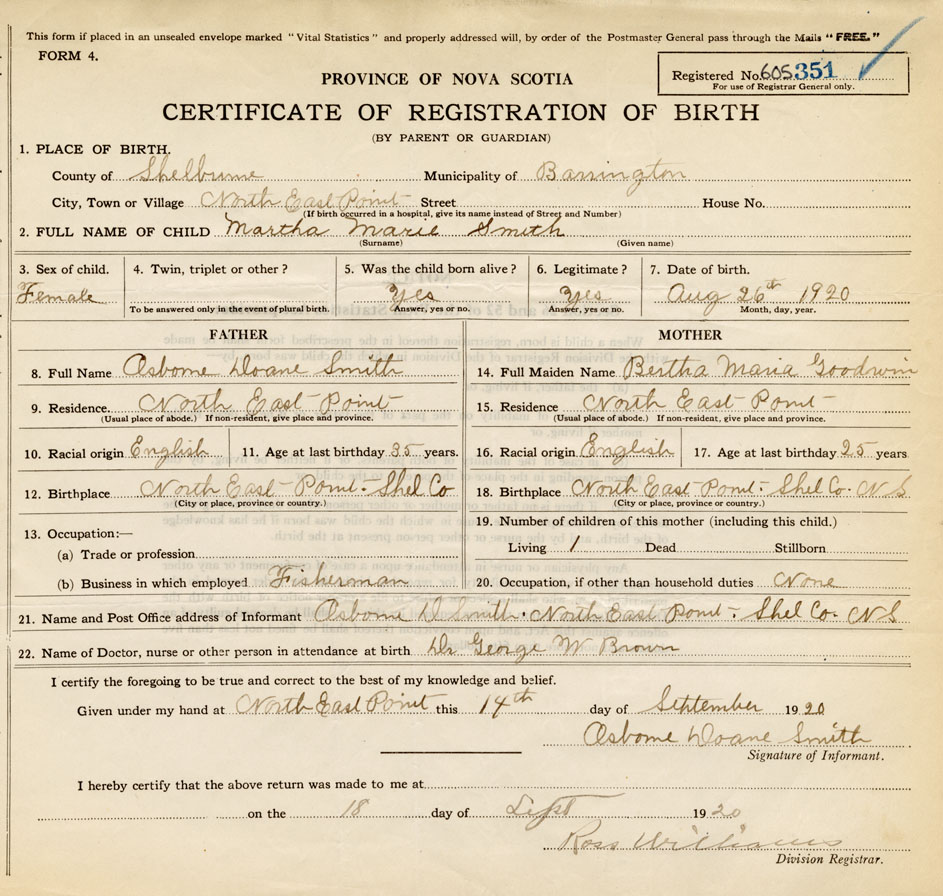 This form if placed in an unsealed envelope marked "Vital Statistics" and properly addressed will, by order of the Postmaster General pass through the Mails "FREE."
FORM 4.
Registered No. 605351
For use of Registrar General only.
PROVINCE OF NOVA SCOTIA
CERTIFICATE OF REGISTRATION OF BIRTH
(BY PARENT OR GUARDIAN)
1. PLACE OF BIRTH.
County of Shelburne Municipality of Barrington
City, Town or Village North East Point Street House No.
(If birth occurred in a hospital, give its name instead of Street and Number)
2. FULL NAME OF CHILD Martha Marie Smith
(Surname) (Given name)
3. Sex of child. 4. Twin, triplet or other? 5. Was the child born alive? 6. Legitimate? 7. Date of birth.
Female Yes Yes Aug 26th 1920
To be answered only in the event of plural birth. Answer, yes or no. Answer, yes or no. Month, day, year.
FATHER MOTHER
8. Full Name Osborne Doane Smith 14. Full Maiden Name Bertha Maria Goodwin
9. Residence. North East Point 15. Residence North East Point
(Usual place of abode.) If non-resident, give place and province. (Usual place of abode.) If non-resident, give place and province.
10. Racial origin English 11. Age at last birthday 35 years. 16. Racial origin English 17. Age at last birthday 25 years
12. Birthplace North East Point Shel Co 18. Birthplace North East Point Shel Co. N S
(City or place, province or country.) (City or place, province or country.)
13. Occupation:— 19. Number of children of this mother (including this child.)
(a) Trade or profession Living 1 Dead Stillborn
(b) Business in which employed Fisherman 20. Occupation, if other than household duties None
21. Name and Post Office address of Informant Osborne D Smith. North East Point Shel Co. N S
22. Name of Doctor, nurse or other person in attendance at birth Dr George W Brown
I certify the foregoing to be true and correct to the best of my knowledge and belief.
Given under my hand at North East Point this 14th day of September 1920
Osborne Doane Smith
Signature of Informant.
I hereby certify that the above return was made to me at
on the 18 day of Sept 1920
Ross Williams
Division Registrar.